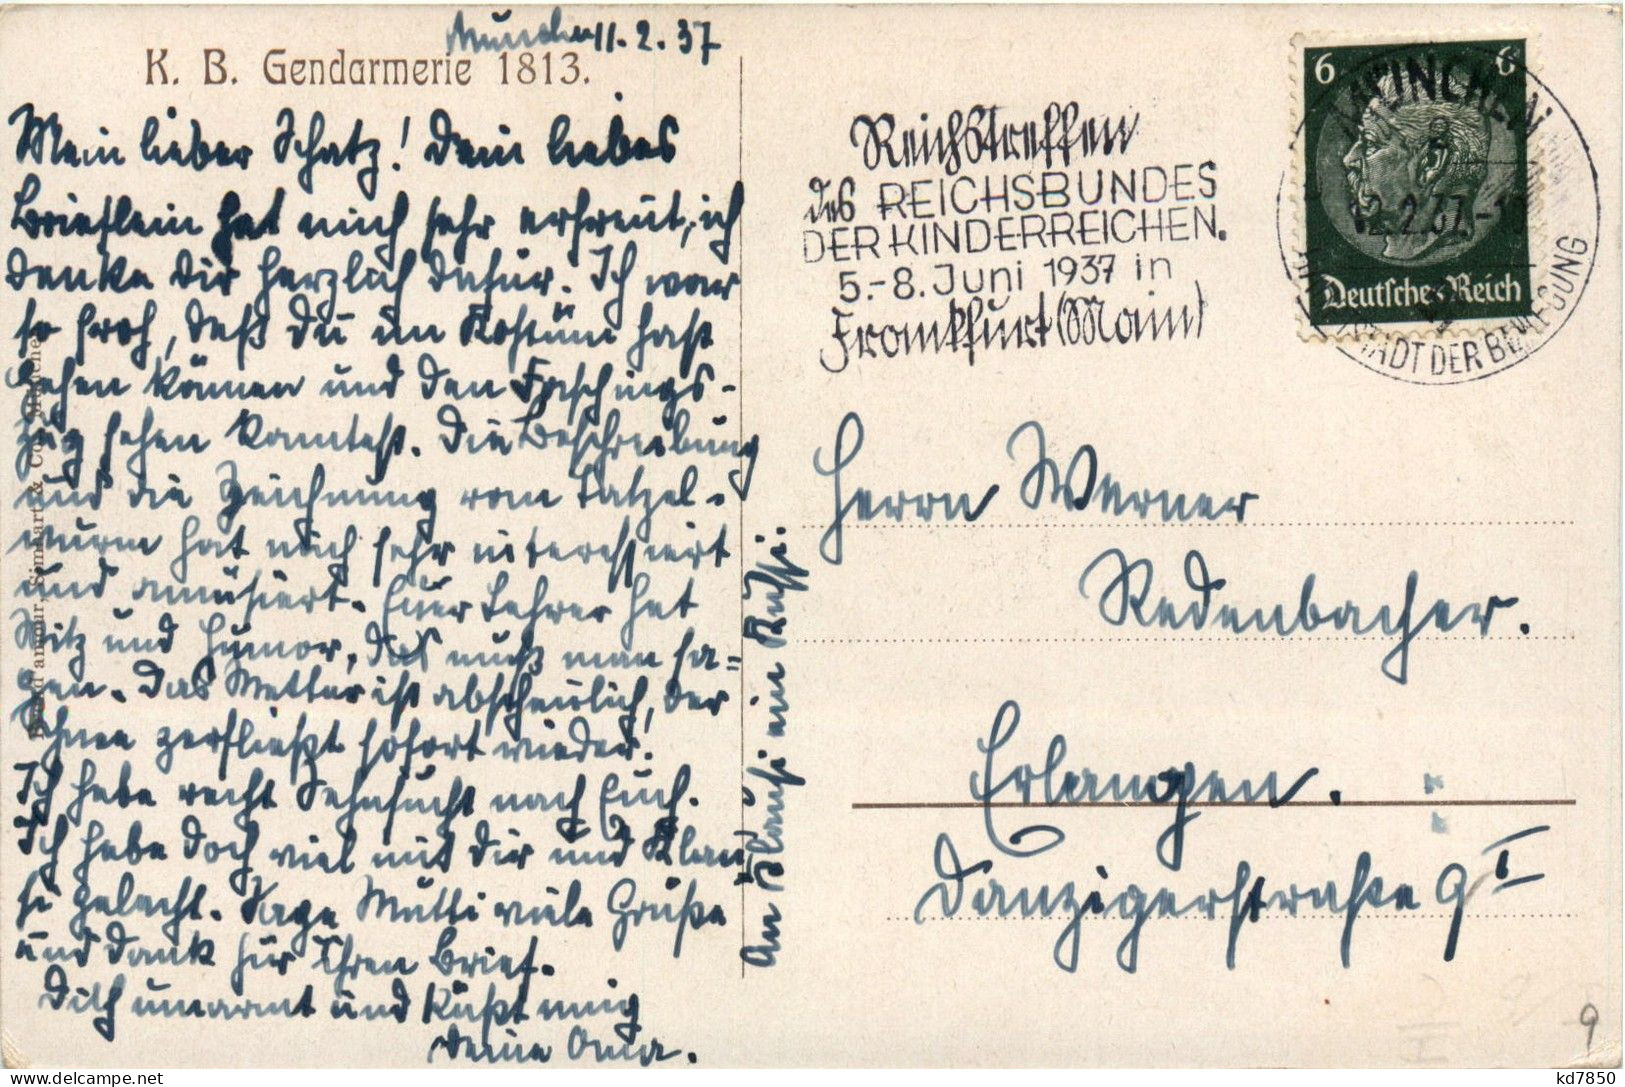 München 11.2.37
K. B. Gendarmerie 1813.
Mein lieber Schatz! Dein liebes
Brieflein hat mich sehr erfreut, ich
danke dir herzlich dafür. Ich war
so froh, daß du im Kostüm hast
gehen können und den Faschings-
zug sehen konntest. Die Beschreibung
und die Zeichnung vom Tatzel-
wurm hat mich sehr interessiert
und amüsiert. Euer Lehrer hat
Witz und Humor, das muß man sa=
gen. Das Wetter ist abscheulich, der
Schnee zerfließt sofort wieder.
Ich habe recht Sehnsucht nach Euch.
Ich habe doch viel mit dir und Klau
si gelacht. Sage Mutti viele Grüße
und Dank für Ihren Brief.
Dich umarmt und küßt innig
Deine Oma.
An Klausi ein Kussi.
Reichstreffen
des REICHSBUNDES
DER KINDERREICHEN.
5.-8. Juni 1937 in
Frankfurt (Main)
6 6
Deutsches Reich
MÜNCHEN
12.2.37.-1
STADT DER BEWEGUNG
Herrn Werner
Redenbacher.
Erlangen.
Danzigerstraße 9 I
9
kd7850